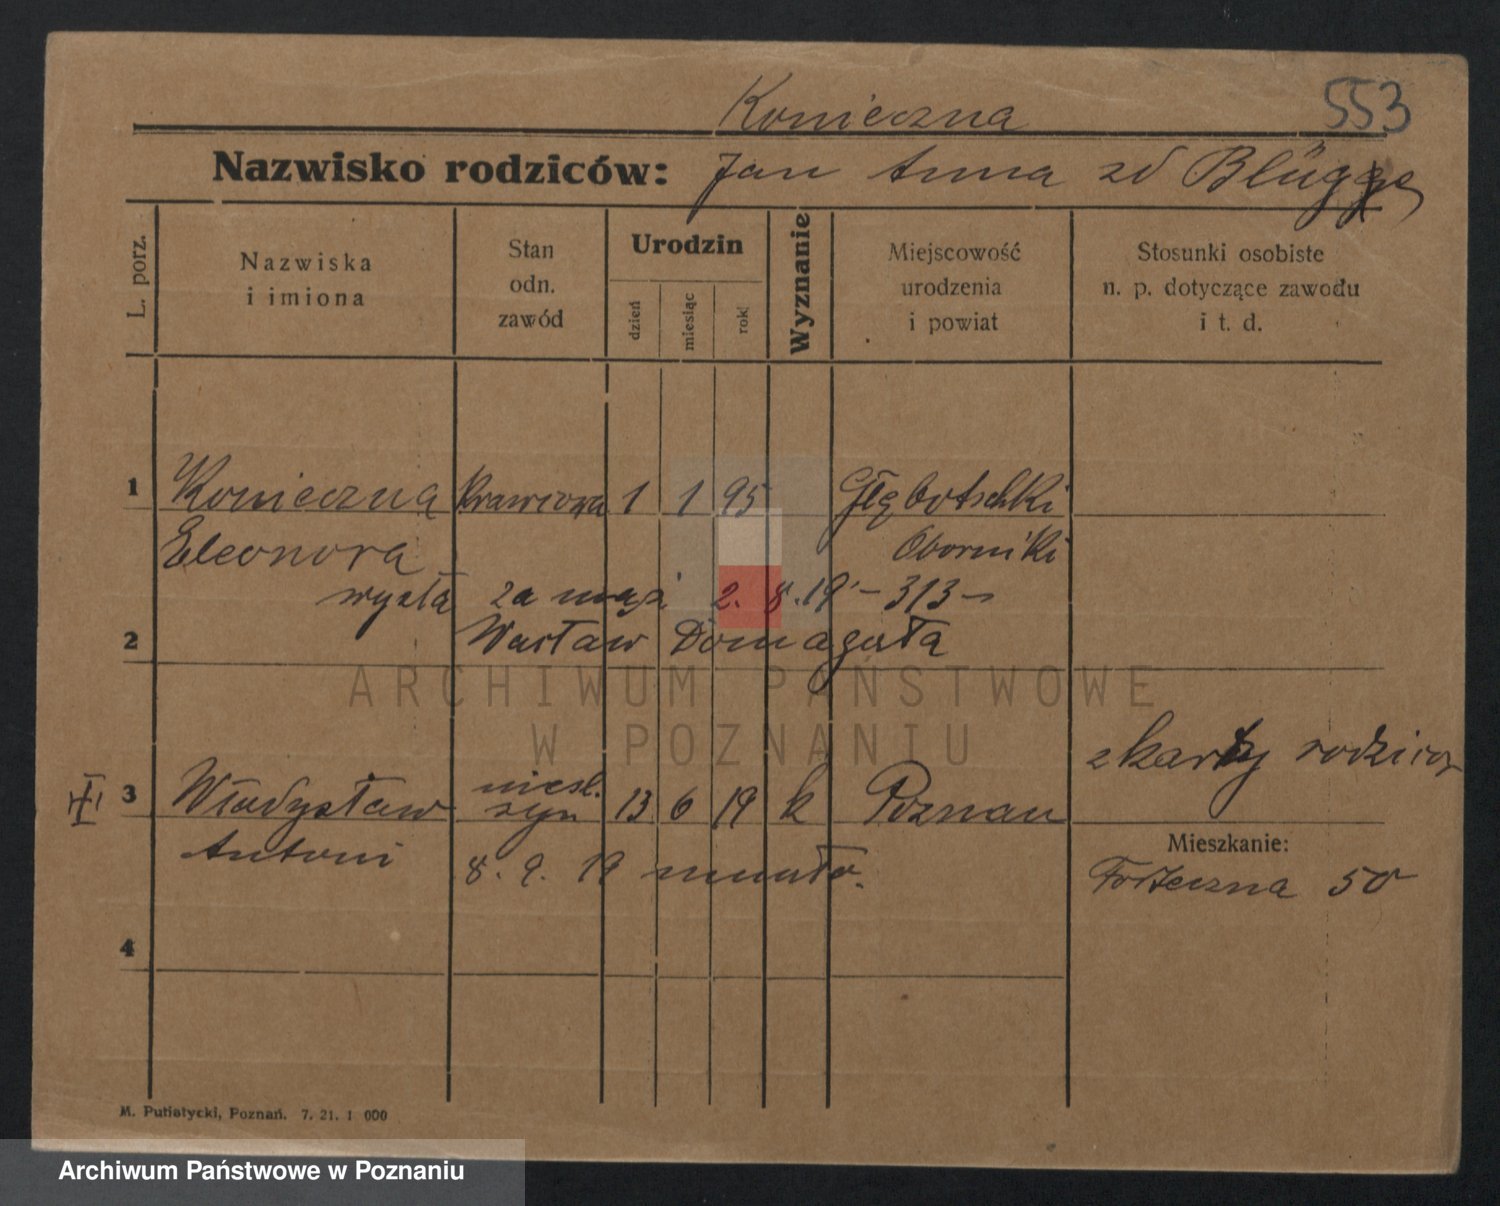 Konieczna
553
Nazwisko rodziców: Jan Anna zd Blügge
L. porz.
Nazwiska
i imiona
Stan
odn.
zawód
Urodzin
dzień
miesiąc
rok
Wyznanie
Miejscowość
urodzenia
i powiat
Stosunki osobiste
n. p. dotyczące zawodu
i t. d.
1 Konieczna Krawcowa 1 1 95 Głębotschki
Eleonora Oborniki
wyszła za mąż 2. 8. 19 - 313 -
2 Wacław Domagała
ARCHIWUM PAŃSTWOWE
W POZNANIU
z karty
3 Władysław nieśl. syn 13 6 19 k Poznan
Antoni
8. 9. 19 umarło.
Mieszkanie:
Forteczna 50
4
M. Putiatycki, Poznań. 7. 21. 1 000
Archiwum Państwowe w Poznaniu